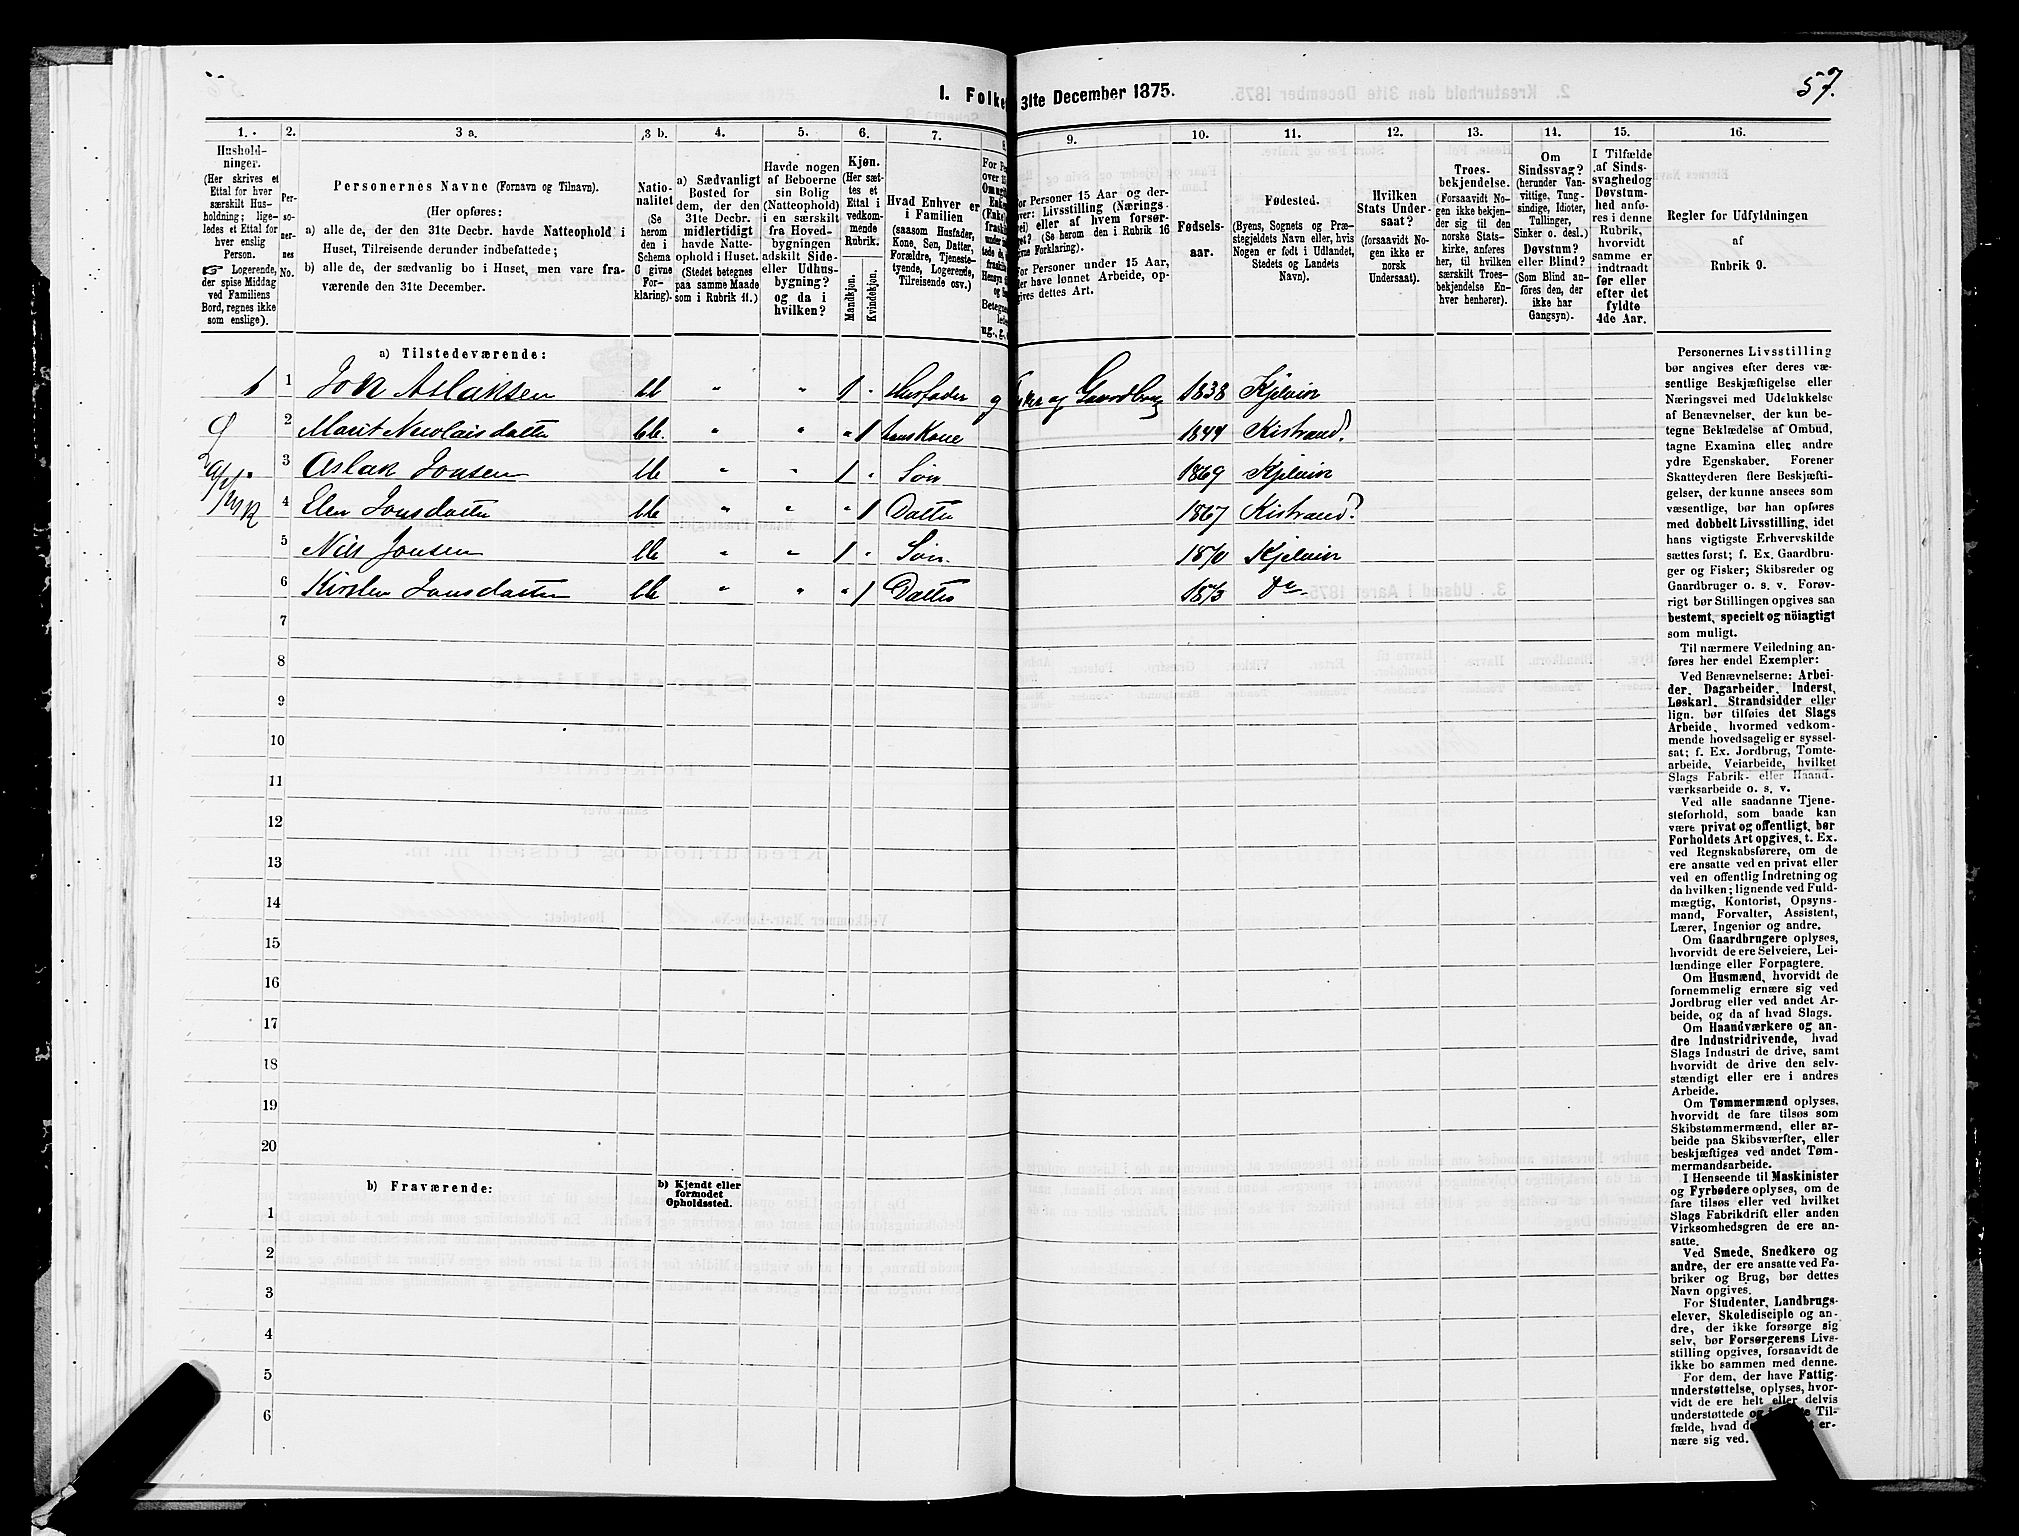 57.
I. Folke 31te December 1875.
1. 2. 3 a. 3 b. 4. 5. 6. 7. 8. 9. 10. 11. 12. 13. 14. 15. 16.
Hushold-
ninger.
(Her skrives et
Ettal for hver
særskilt Hus-
holdning; lige-
ledes et Ettal for
hver enslig
Person.
☞ Logerende,
der spise Middag
ved Familiens
Bord, regnes ikke
som enslige).
Per-
so-
ner-
nes
No.
Personernes Navne (Fornavn og Tilnavn).
(Her opføres:
a) alle de, der den 31te Decbr. havde Natteophold i
Huset, Tilreisende derunder indbefattede;
b) alle de, der sædvanlig bo i Huset, men vare fra-
værende den 31te December.
Natio-
nalitet
(Se
herom
den i
Schema
C givne
For-
klaring).
a) Sædvanligt
Bosted for
dem, der den
31te Decbr.
midlertidigt
havde Natte-
ophold i Huset.
(Stedet betegnes
paa samme Maade
som i Rubrik 11.)
Havde nogen
af Beboerne
sin Bolig
(Natteophold)
i en særskilt
fra Hoved-
bygningen
adskilt Side-
eller Udhus-
bygning?
og da i
hvilken?
Kjøn.
(Her sæt-
tes et
Ettal i
vedkom-
mende
Rubrik.
Mandkjøn.
Kvindekjøn.
Hvad Enhver er
i Familien
(saasom Husfader,
Kone, Søn, Datter,
Forældre, Tjeneste-
tyende, Logerende,
Tilreisende osv.)
For Personer 15 Aar og der-
over: Livsstilling (Nærings-
vei) eller af hvem forsør-
get? (Se herom den i Rubrik 16
givne Forklaring).
For Personer under 15 Aar,
der have lønnet Arbeide, op-
gives dettes Art.
Fødsels-
aar.
Fødested.
(Byens, Sognets og Præ-
stegjeldets Navn eller, hvis
Nogen er født i Udlandet,
Stedets og Landets
Navn).
Hvilken
Stats Under-
saat?
(forsaavidt No-
gen ikke er
norsk
Undersaat).
Troes-
bekjendelse.
(Forsaavidt No-
gen ikke bekjen-
der sig til den
norske Stats-
kirke, anføres
her, til hvilken
særskilt Troes-
bekjendelse En-
hver henhører).
Om
Sindssvag?
(herunder Van-
vittige, Tung-
sindige, Idioter,
Tullinger,
Sinker o. desl.)
Døvstum?
eller Blind?
(Som Blind an-
føres den, der
ikke har
Gangsyn).
I Tilfælde
af Sinds-
svaghed og
Døvstum-
hed anfø-
res i denne
Rubrik,
hvorvidt
samme er
indtraadt
før eller
efter det
fyldte
4de Aar.
Regler for Udfyldningen
af
Rubrik 9.
a) Tilstedeværende:
1 1 Jon Aslaksen ll " " 1 " Husfader g Fisker og Gaardbrug 1838 Kjelvin
2 Marit Nicolaisdatter ll. " " " 1 hans Kone 1844 Kistrand?
3 Aslak Jonsen ll " " 1 " Søn 1869 Kjelvin
4 Elen Jonsdatter ll " " " 1 Datter 1867 Kistrand?
5 Nils Jonsen ll " " 1 " Søn 1870 Kjelvin
6 Kirsten Jonsdatter ll " " " 1 Datter 1873 Do
7
8
9
10
11
12
13
14
15
16
17
18
19
20
b) Fraværende:
b) Kjendt eller
formodet
Opholdssted.
1
2
3
4
5
6
Personernes Livsstilling
bør angives efter deres væ-
sentlige Beskjæftigelse eller
Næringsvei med Udelukkelse
af Benævnelser, der kun be-
tegne Beklædelse af Ombud,
tagne Examina eller andre
ydre Egenskaber. Forener
Skatteyderen flere Beskjæfti-
gelser, der kunne ansees som
væsentlige, bør han opføres
med dobbelt Livsstilling, idet
hans vigtigste Erhvervskilde
sættes først; f. Ex. Gaardbru-
ger og Fisker; Skibsreder og
Gaardbruger o. s. v. Forøv-
rigt bør Stillingen opgives saa
bestemt, specielt og nöiagtigt
som muligt.
Til nærmere Veiledning an-
føres her endel Exempler:
Ved Benævnelserne: Arbei-
der, Dagarbeider, Inderst,
Løskarl, Strandsidder eller
lign. bør tilføies det Slags
Arbeide, hvormed vedkom-
mende hovedsagelig er syssel-
sat; f. Ex. Jordbrug, Tomte-
arbeide, Veiarbeide, hvilket
Slags Fabrik- eller Haand-
værksarbeide o. s. v.
Ved alle saadanne Tjene-
steforhold, som baade kan
være privat og offentligt, bør
Forholdets Art opgives, t. Ex.
ved Regnskabsførere, om de
ere ansatte ved en privat eller
ved en offentlig Indretning og
da hvilken; lignende ved Fuld-
mægtig, Kontorist, Opsyns-
mand, Forvalter, Assistent,
Lærer, Ingeniør og andre.
Om Gaardbrugere oplyses,
hvorvidt de ere Selveiere, Lei-
lændinge eller Forpagtere.
Om Husmænd, hvorvidt de
fornemmelig ernære sig ved
Jordbrug eller ved andet Ar-
beide, og da af hvad Slags.
Om Haandværkere og an-
dre Industridrivende, hvad
Slags Industri de drive, samt
hvorvidt de drive den selv-
stændigt eller ere i andres
Arbeide.
Om Tømmermænd oplyses,
hvorvidt de fare tilsøs som
Skibstømmermænd, eller ar-
beide paa Skibsværfter, eller
beskjæftiges ved andet Tøm-
mermandsarbeide.
I Henseende til Maskinister
og Fyrbødere oplyses, om de
fare tilsøs eller ved hvilket
Slags Fabrikdrift eller anden
Virksomhedsgren de ere an-
satte.
Ved Smede, Snedkere og
andre, der ere ansatte ved Fa-
briker og Brug, bør dettes
Navn opgives.
For Studenter, Landbrugs-
elever, Skoledisciple og an-
dre, der ikke forsørge sig
selv, bør Forsørgerens Livs-
stilling opgives, forsaavidt de
ikke bo sammen med denne.
For dem, der have Fattig-
understøttelse, oplyses, hvor-
vidt de ere helt eller delvis
understøttede og i Til-
fælde, hvad de er-
nære sig ved.